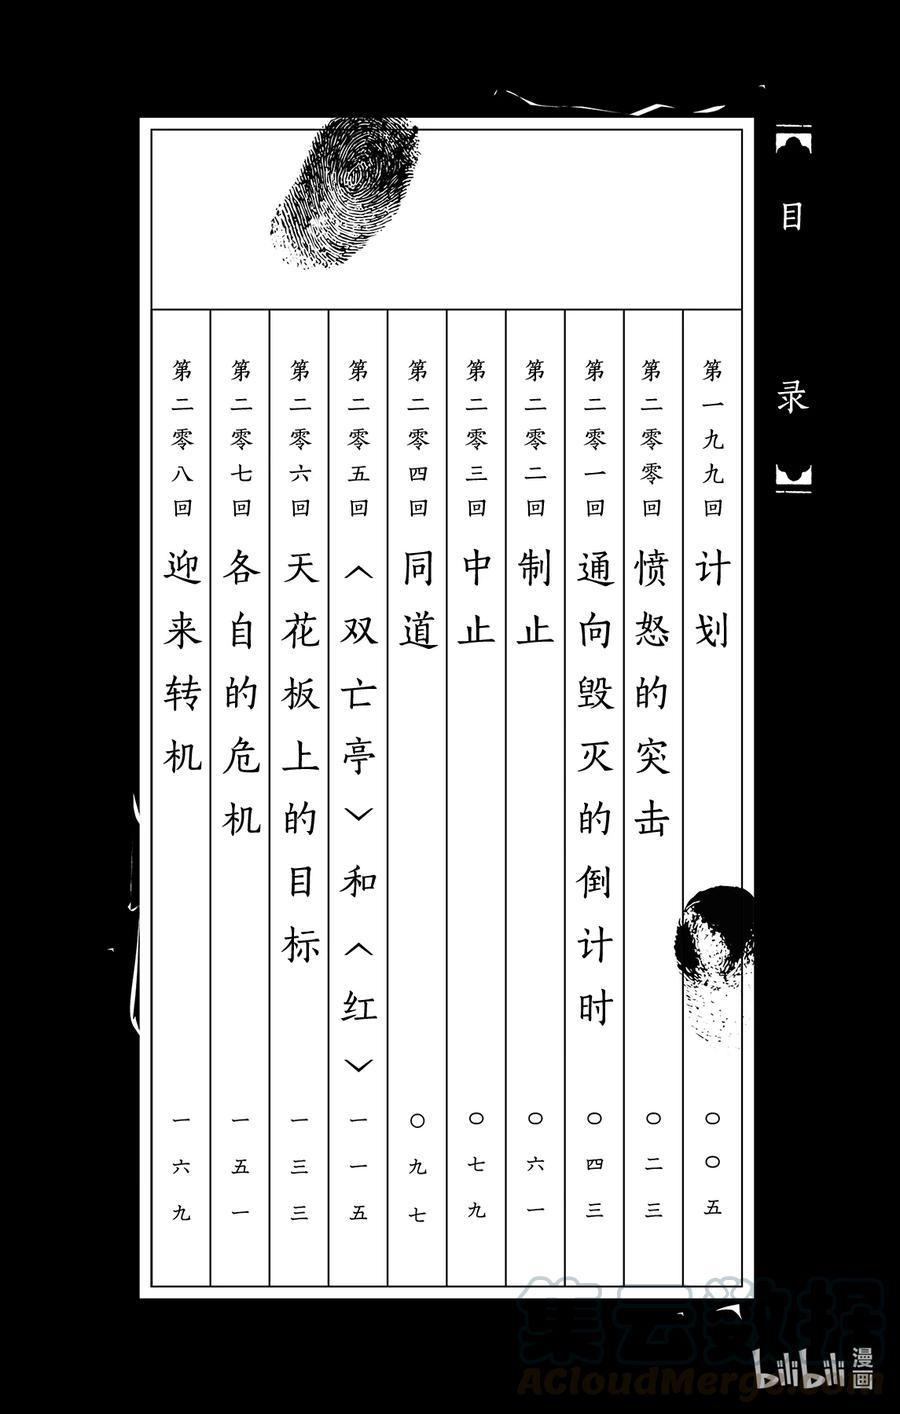 目录
第一九九回 计划 〇〇五
第二零零回 愤怒的突击 〇二三
第二零一回 通向毁灭的倒计时 〇四三
第二零二回 制止 〇六一
第二零三回 中止 〇七九
第二零四回 同道 〇九七
第二零五回 〈双亡亭〉和〈红〉 一一五
第二零六回 天花板上的目标 一三三
第二零七回 各自的危机 一五一
第二零八回 迎来转机 一六九
集云数据
ACloudMerge.com
bilibili 漫画